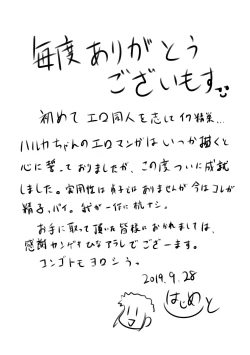 毎度ありがとう
ございもす
初めてエロ同人を志して
ハルカちゃんのエロマンガはいつか描くと
心に誓っておりましたが、この度ついに成就
しました。実用性は
ありませんが今はコレが
精子ッパイ。我が一作に杭ナシ。
お手に取って頂いた皆様におかれましては、
感謝カンゲキひなアラレでございます。
コンゴトモヨロシウ。
2019.9.28
はじめと